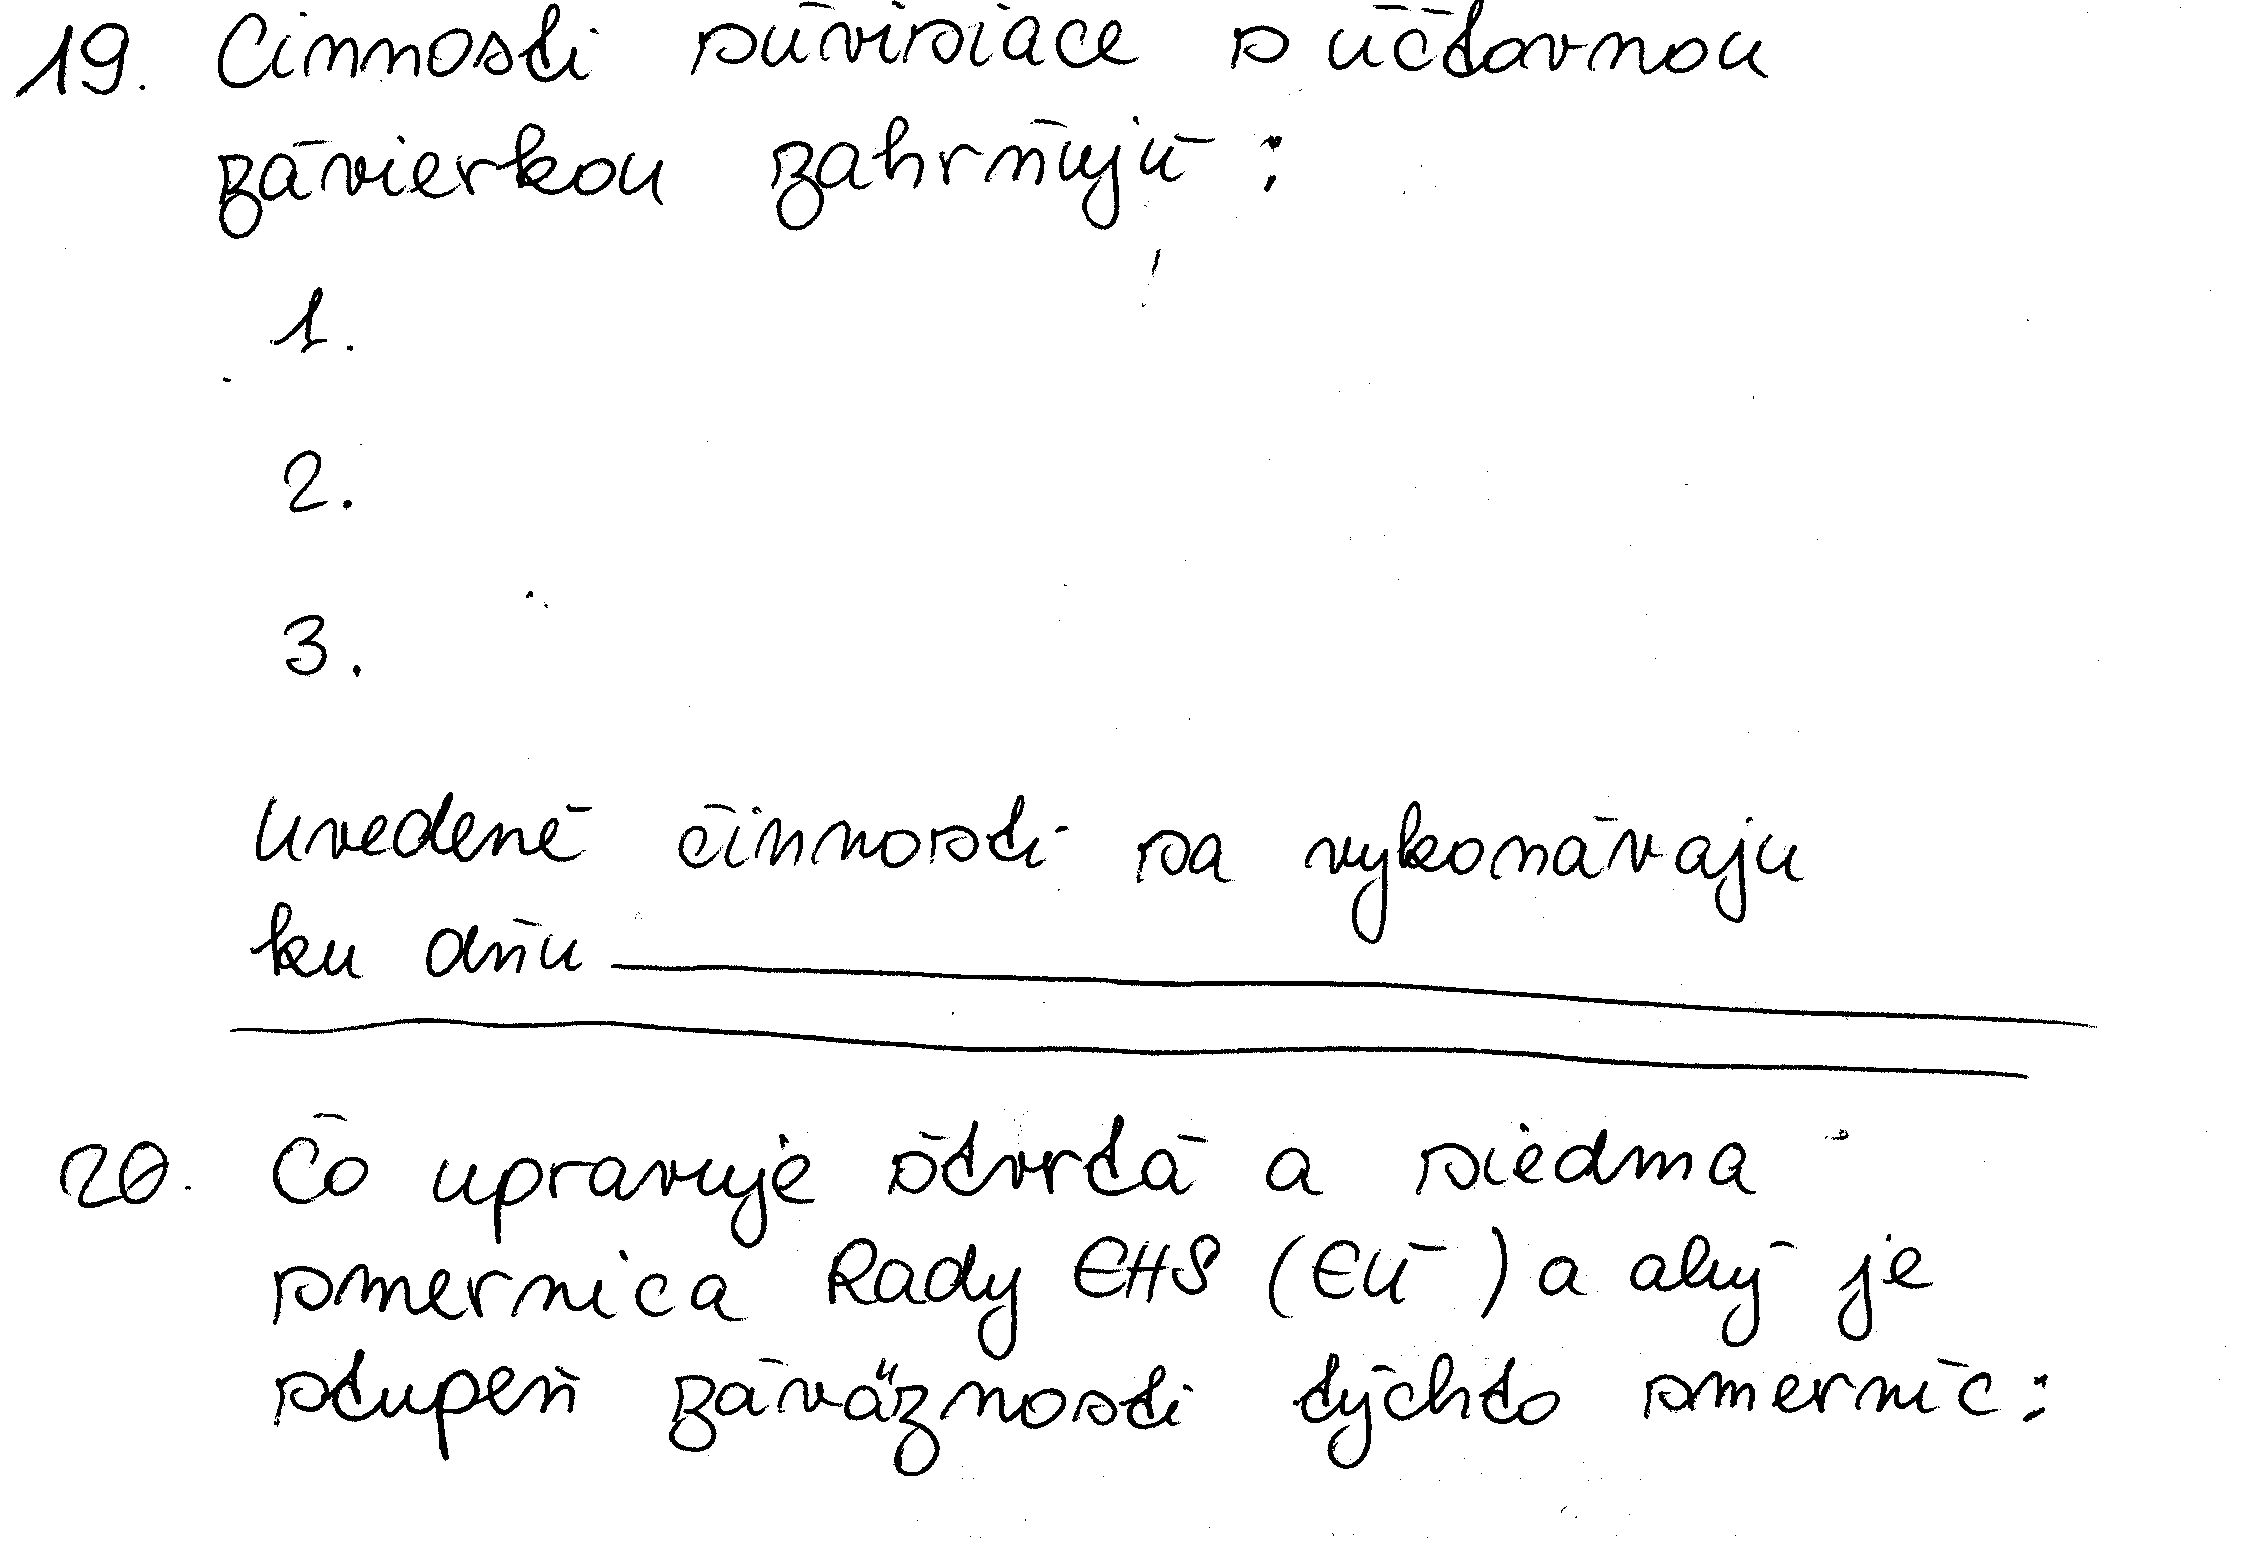 19. Činnosti súvisiace s účtovnou
závierkou zahrňujú :
1.
2.
3.
Uvedené činnosti sa vykonávaju
ku dňu
20. Čo upravuje štvrtá a siedma
smernica Rady EHS (EÚ) a aký je
stupeň záväznosti týchto smerníc: